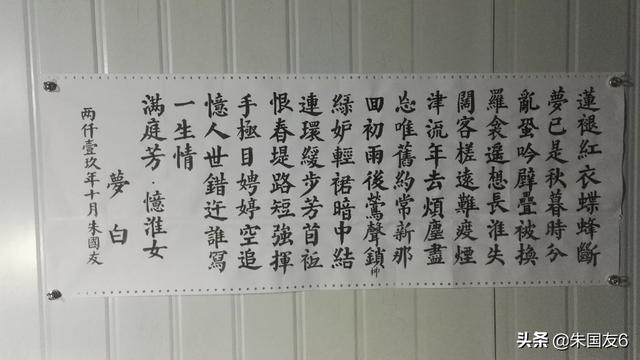 蓮褪紅衣蝶蜂斷
夢已是秋暮時分
亂蛩吟壁疊被換
羅衾遥想長淮失
闊客槎遠難渡煙
津流年去煩塵盡
忘唯舊約常新那
回初雨後鶯聲鎖柳
綠妒輕裙暗中結
連環緩步芳
恨春堤路短強揮
手極目娉婷空追
憶人世錯迕誰寫
一生情
滿庭芳·憶淮女
夢白
两仟壹玖年十月朱國友
头条 @朱国友6